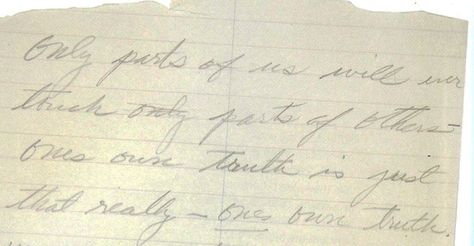 Only parts of us will ever
touch only parts of others –
ones own truth is just
that really – ones own truth.